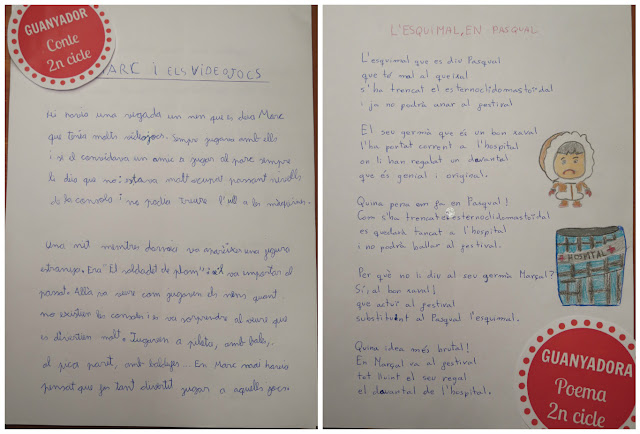 GUANYADOR
Conte
2n cicle
MARC I ELS VIDEOJOCS
Hi havia una vegada un nen que es deia Marc
que tenia molts videojocs. Sempre jugava amb ells
i si el convidava un amic a jugar al parc sempre
li deia que no: estava molt ocupat passant nivells
de la consola i no podia treure l'ull a les màquines.
Una nit mentres dormia va aparèixer una figura
estranya. Era "El soldadet de plom" i el va emportar al
passat. Allà va veure com jugaven els nens quan
no existien les consoles i es va sorprendre al veure que
es divertien molt. Jugaven a pilota, amb bales,
al pica paret, amb baldufes... En Marc mai havia
pensat que fos tant divertit jugar a aquells jocs.
L'ESQUIMAL, EN PASQUAL
L'esquimal que es diu Pasqual
que té mal al queixal
s'ha trencat el esternoclidomastoidal
i ja no podrà anar al festival.
El seu germà que és un bon xaval
l'ha portat corrent a l'hospital
on li han regalat un davantal
que és genial i original.
Quina pena em fa en Pasqual!
Com s'ha trencat el esternoclidomastoidal
es quedarà tancat a l'hospital
i no podrà ballar al festival.
Per què no li diu al seu germà Marçal?
Sí, al bon xaval!
que actuï al festival
substituint al Pasqual l'esquimal.
Quina idea més brutal!
En Marçal va al festival
tot lluint el seu regal
el davantal de l'hospital.
HOSPITAL
GUANYADORA
Poema
2n cicle